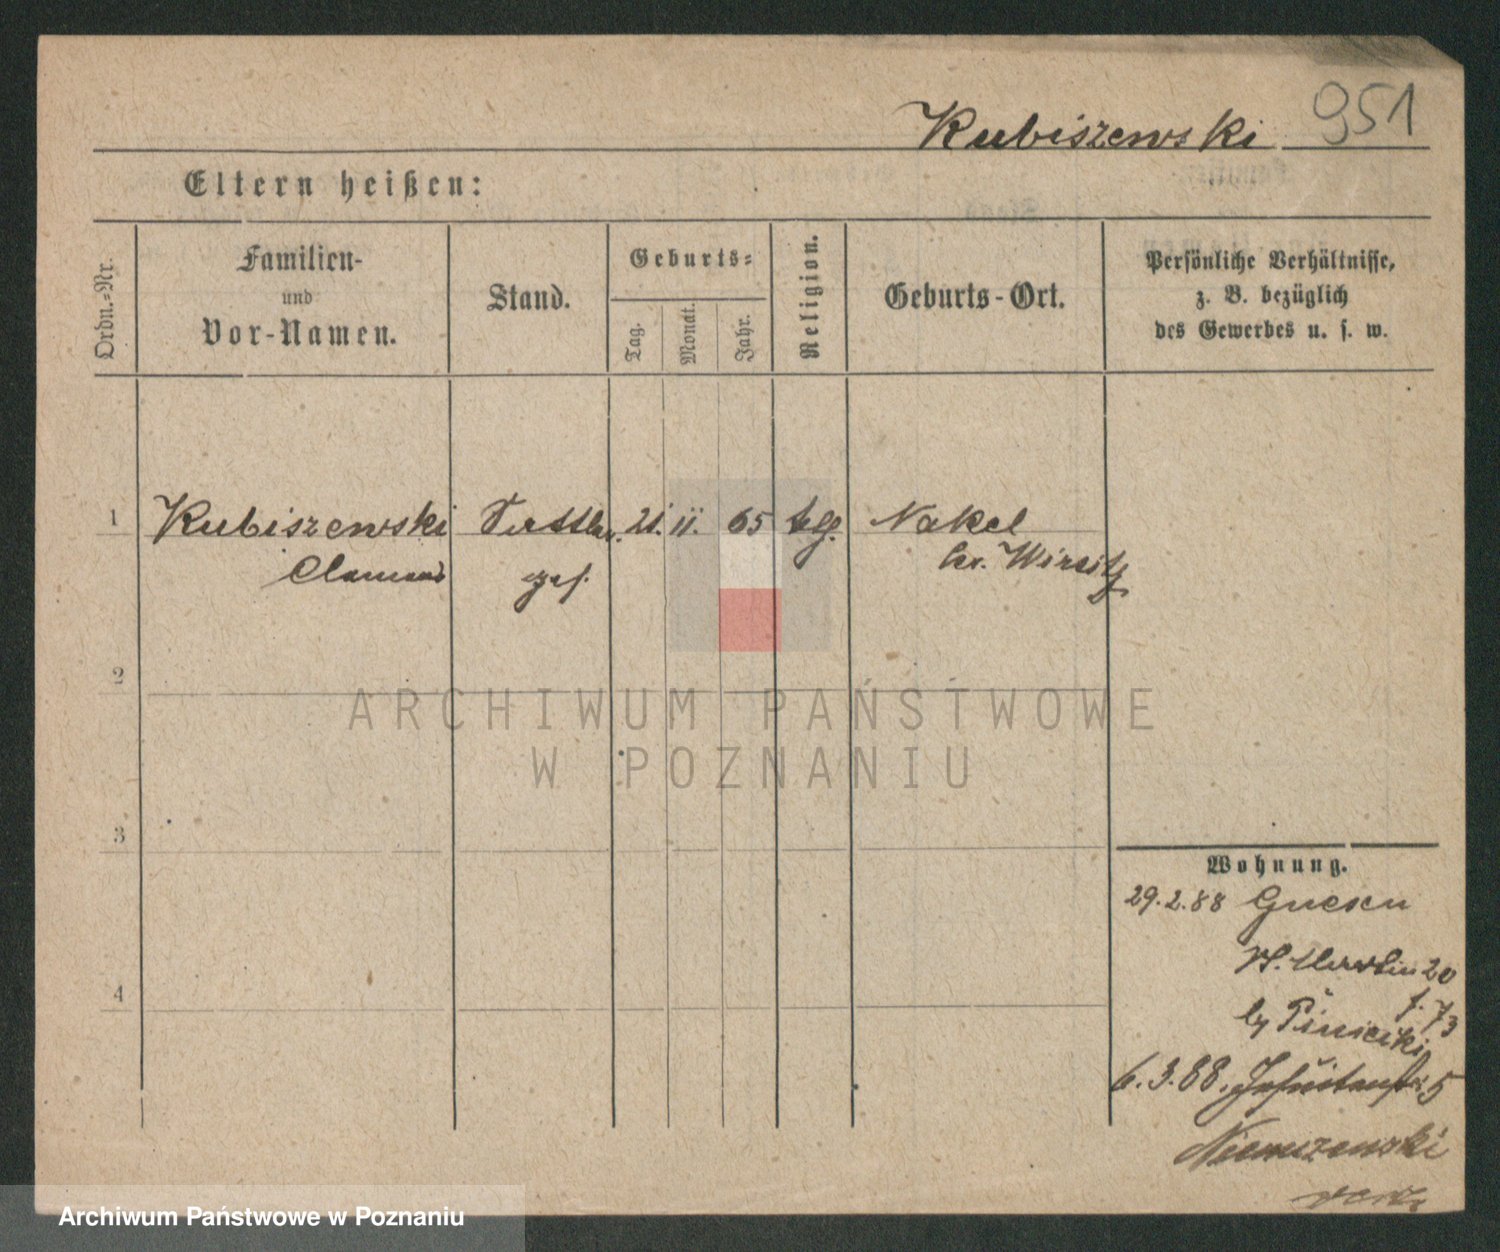 951
Kubiszewski
Eltern heißen:
Ordn.=Nr.
Familien-
und
Vor-Namen.
Stand.
Geburts=
Tag.
Monat.
Jahr.
Religion.
Geburts-Ort.
Persönliche Verhältnisse,
z. B. bezüglich
des Gewerbes u. s. w.
1 Kubiszewski Sattler 21. 11. 65 Nakel
Clemens gs. kr. Wirsitz
2
3
4
ARCHIWUM PAŃSTWOWE
W POZNANIU
Wohnung.
29.2.88 Gnesen
St. Martin 20
f. 73
by
6.3.88. Jesuitenstr. 5
Niemczewski
verz.
Archiwum Państwowe w Poznaniu